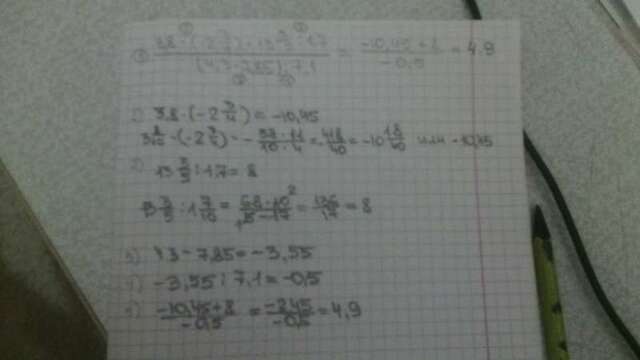 3,8 · (-2 3/4) + 13 3/5 : 1,7 / (4,3 - 7,85) : 7,1 = -10,45 + 8 / -0,5 = 4,9
1) 3,8 · (-2 3/4) = -10,45
3 8/10 · (-2 3/4) = - 38 · 11 / 10 · 4 = - 418/40 = -10 18/40 или -10,45
2) 13 3/5 : 1,7 = 8
13 3/5 : 1 7/10 = 68 · 10 / 5 · 17 = 136/17 = 8
3) 4,3 - 7,85 = -3,55
4) -3,55 : 7,1 = -0,5
5) -10,45 + 8 / -0,5 = -2,45 / -0,5 = 4,9